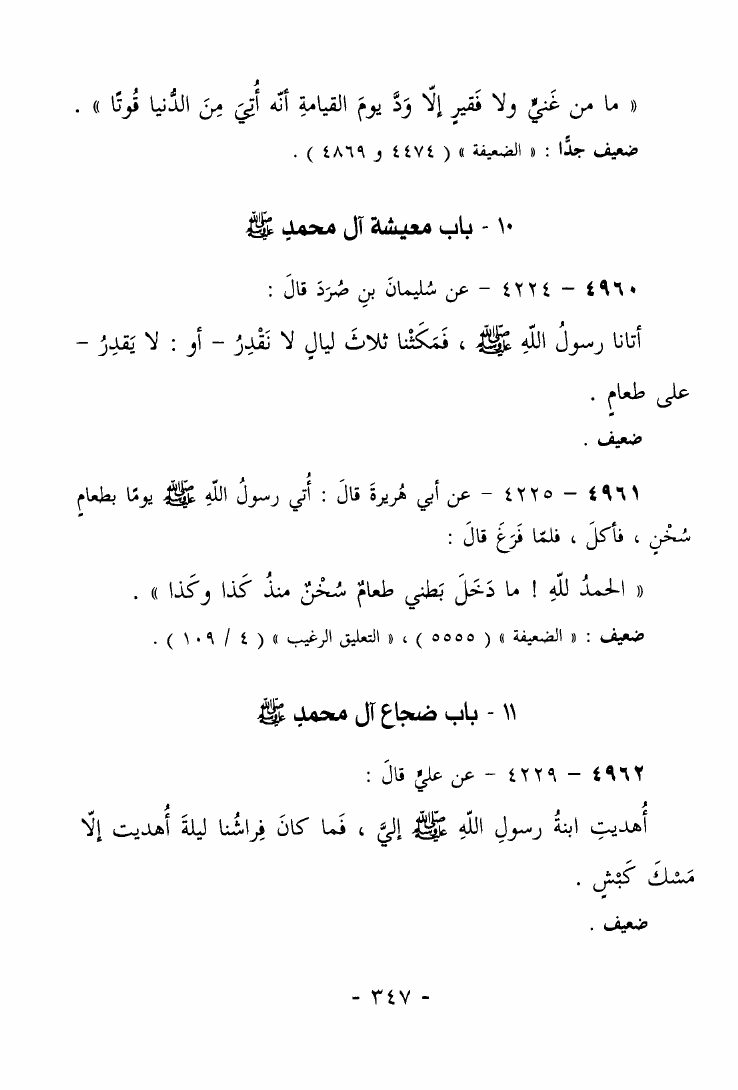 « ما من غَنيٍّ ولا فَقيرٍ إلّا وَدَّ يومَ القيامةِ أنّه أُتِيَ مِنَ الدُّنيا قُوتًا » .
ضعيف جدًّا : « الضعيفة » ( ٤٤٧٤ و ٤٨٦٩ ) .
١٠ - باب معيشة آل محمدٍ ﷺ
٤٩٦٠ – ٤٢٢٤ – عن سُليمانَ بنِ صُرَدَ قالَ :
أتانا رسولُ اللّهِ ﷺ ، فَمَكَثْنا ثلاثَ ليالٍ لا نَقْدِرُ – أو : لا يَقدِرُ –
على طعامٍ .
ضعيف .
٤٩٦١ – ٤٢٢٥ – عن أبي هُريرةَ قالَ : أُتي رسولُ اللّهِ ﷺ يومًا بطعامٍ
سُخْنٍ ، فأكلَ ، فلمّا فَرَغَ قالَ :
« الحمدُ للّهِ ! ما دَخَلَ بَطني طعامٌ سُخْنٌ منذُ كَذا وكَذا » .
ضعيف : « الضعيفة » ( ٥٥٥٥ ) ، « التعليق الرغيب » ( ٤ / ١٠٩ ) .
١١ - باب ضجاع آل محمدٍ ﷺ
٤٩٦٢ – ٤٢٢٩ – عن عليٍّ قالَ :
أُهديتِ ابنةُ رسولِ اللّهِ ﷺ إليَّ ، فَما كانَ فِراشُنا ليلةَ أُهديت إلّا
مَسْكَ كَبْشٍ .
ضعيف .
- ٣٤٧ -